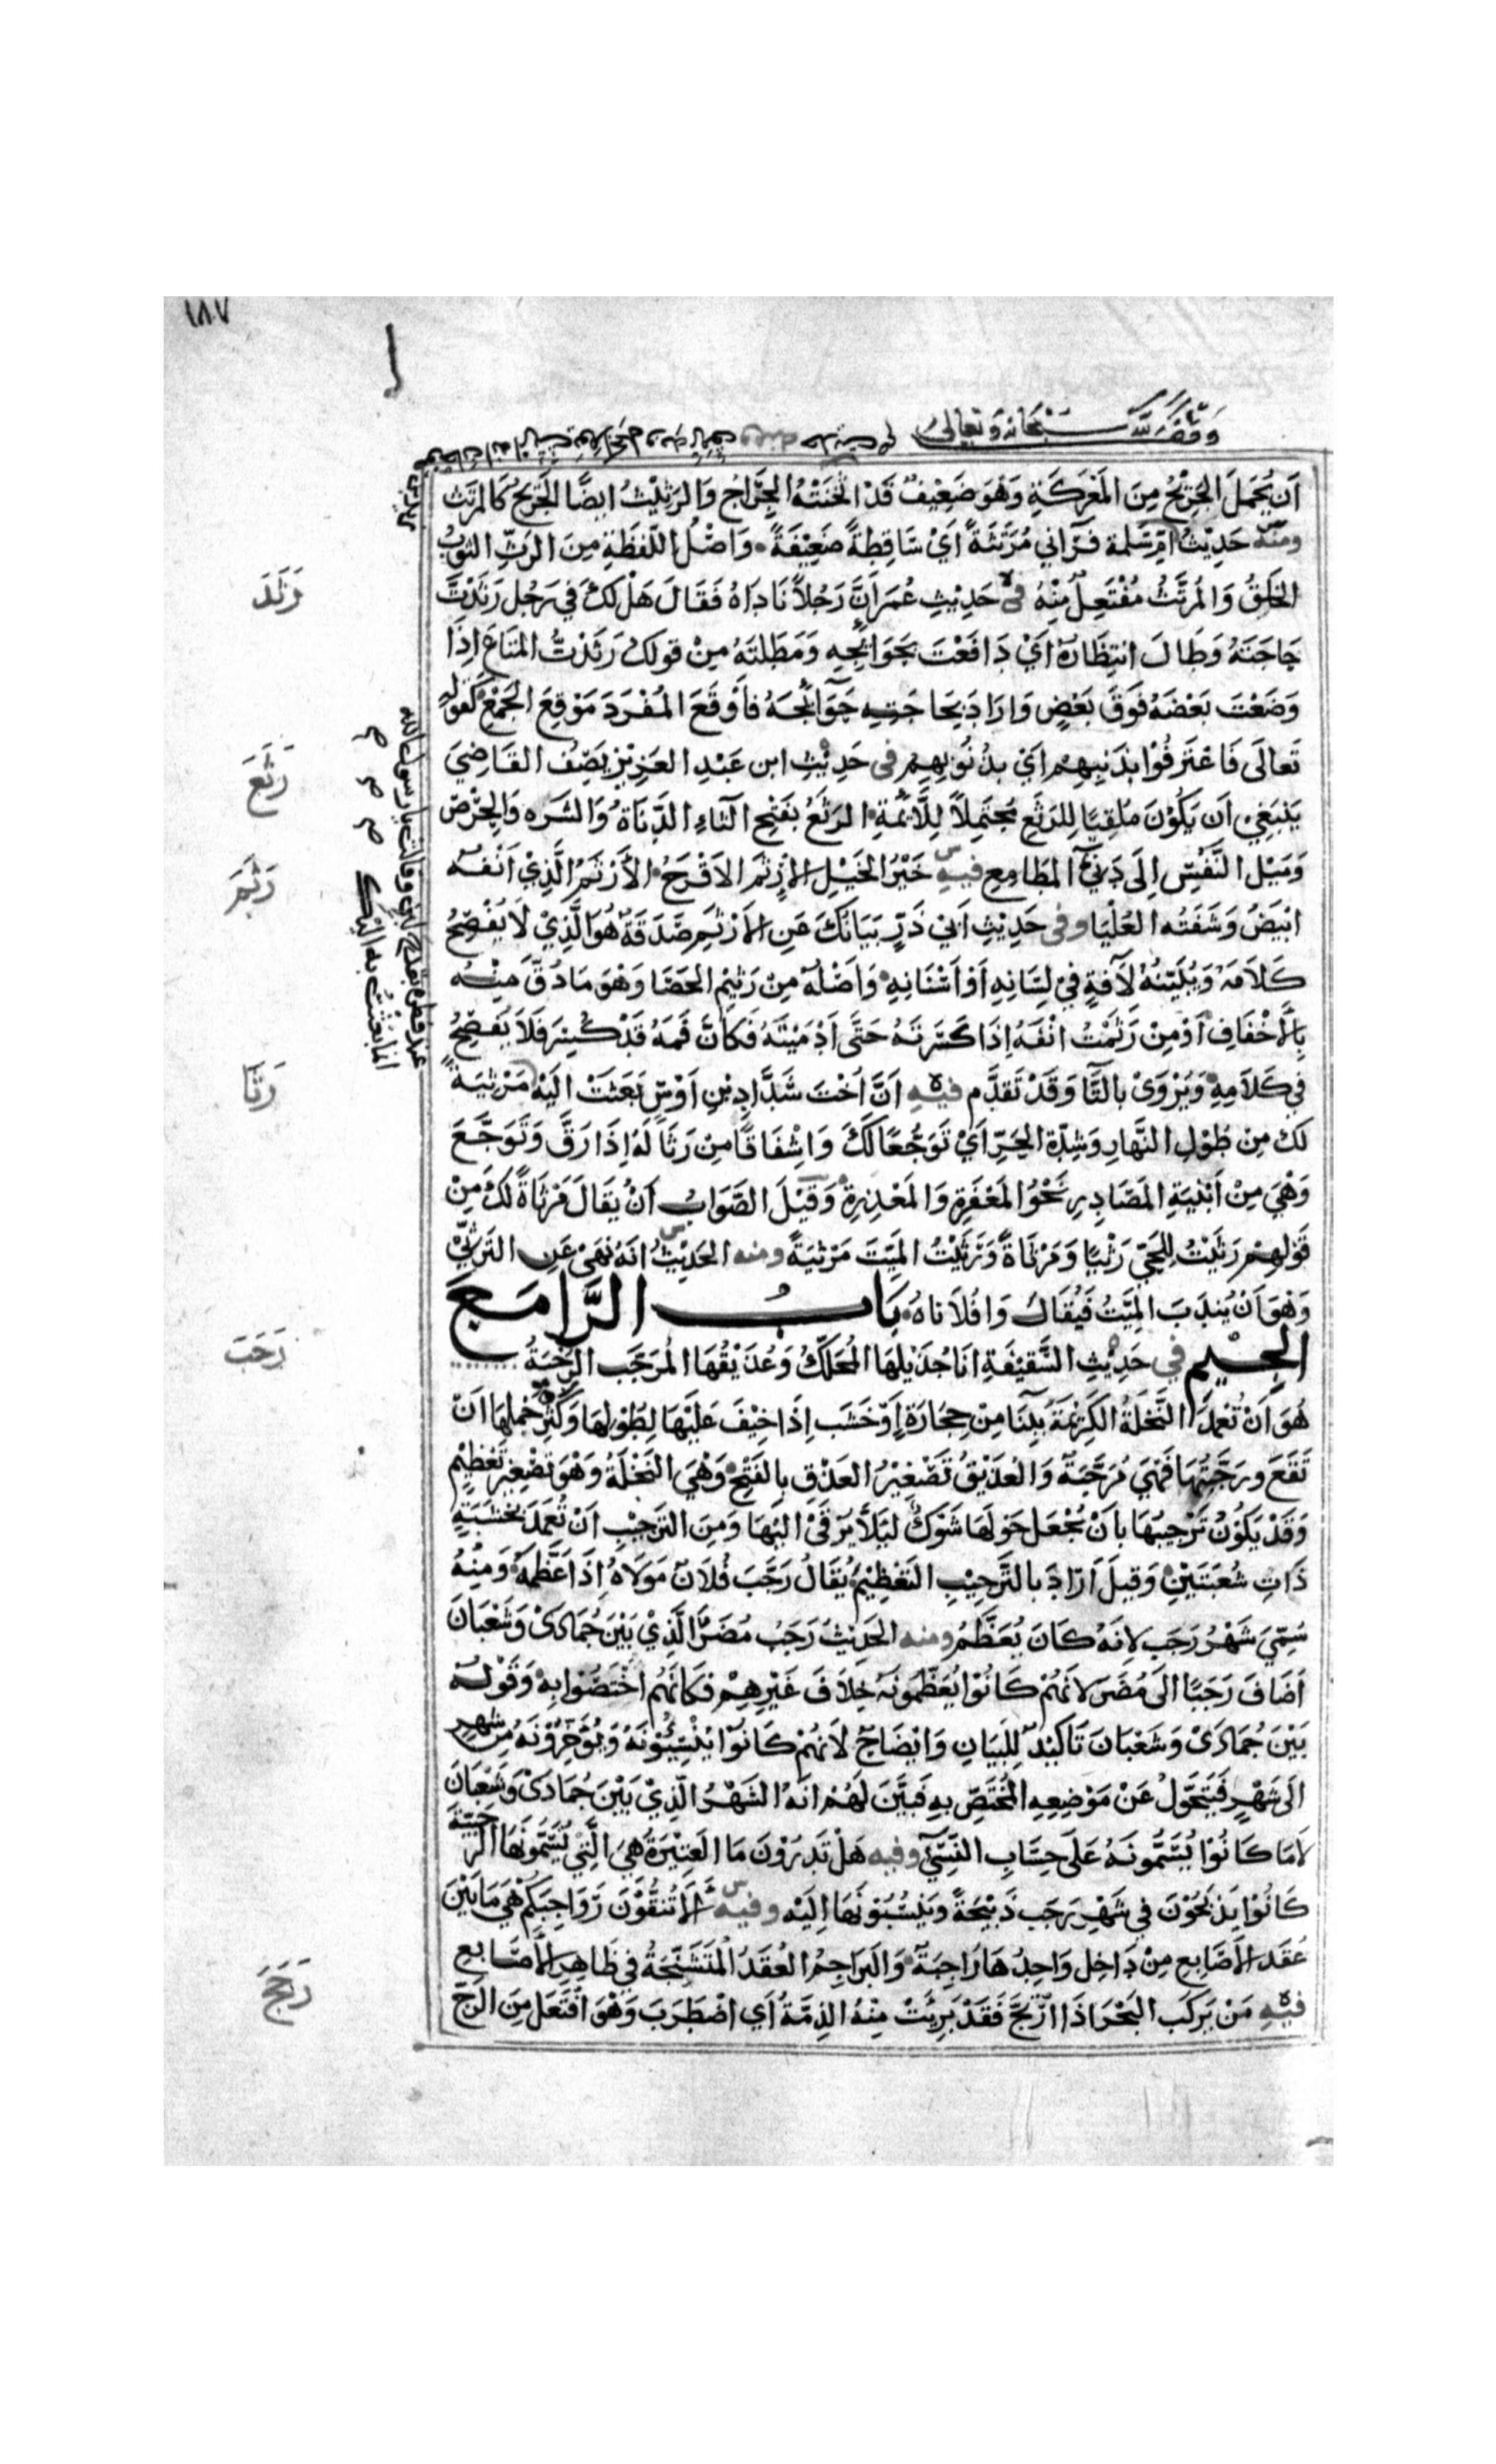 ١٨٧
وقف لله سبحانه وتعالى
أَن يُحْمَلَ الجَرِيْحُ مِنَ المَعْرَكَةِ وَهْوَ ضَعِيْفٌ قَدْ اثْخَنَتْهُ الجِرَاحُ وَالرَثِيْثُ ايضًا الجَرِيحُ كَالمرْتَث
ومنه حَدِيْثُ امِّ سَلمة فَرَآني مُرْتَثَةً أَيْ سَاقِطَةً ضَعِيْفَةً وَاصْلُ اللَّفظَةِ مِنَ الرَثِّ الثَوْبُ
الخَلِقُ وَالمُرتَّثُ مُفْتَعِلٌ مِنْهُ في حَدِيْثِ عُمَرَ انَّ رَجُلاً نَادَاهُ فَقَالَ هَلْ لكَ في رَجُل رَثَدْتَ
حَاجَتَهُ وَطَالَ انتِظَارُهُ أَيْ دَافَعْتَ بحَوَائِجِهِ وَمَطَلتَهُ مِنْ قولكَ رَثَدْتُ المَتَاعَ اذَا
وَضَعْتَ بَعْضَهُ فَوقَ بَعْضٍ وَارَادَ بِحَاجَتِهِ حَوَائِجَهُ فأَوْقَعَ المُفْرَدَ مَوْقِعَ الجَمْعِ كَقولِهِ
تَعالَى فَاعْتَرفُوْا بذَنبِهِم أيْ بذُنُوبِهِم في حَدِيْثِ ابن عَبْدِ العَزِيْزِ يَصِفُ القَاضِيَ
يَنْبَغِي ان يَكُوْنَ مُلقِيًا لِلرَثَعِ مُحْتَمِلاً لِلَّائِمَةِ الرَثَعُ بفَتْحِ الثَاءِ الدَّنَاةُ وَالشَرَه وَالحِرْصُ
وَمَيْل النَّفْسِ الِى دَنيّ المطَامِعِ فيه خَيْرُ الخَيْلِ الأرْثَمَ الاقْرَحُ الأَرْثَمُ الَّذِيْ اَنْفُه
ابْيَضُ وَشَفَتُه العُلْيَا وفي حَدِيْثِ اَبي ذَرٍّ بَيَانُكَ عَنِ الأرْثَمِ صَدَقَةٌ هُوَ الَّذِيْ لَا يُفْصِحُ
كَلَامَهُ وَيُبَيّنُهُ لآفةٍ فيْ لِسَانِهِ اَوْ اَسْنَانِهِ وَاَصْلُهُ مِنْ رَثيْمِ الحَصَا وَهْوَ مَا دُقَّ مِنْهُ
بالأَخْفَافِ اَوْ مِنْ رَثَمْتُ انْفَهُ اِذَا كَسَرتَهُ حَتَّى اَدْمَيْتَهُ فَكأنَّ فَمَهُ قَدْ كُسِرَ فَلَا يُفصِحُ
في كَلَامِهِ وَيُرْوَى بالتَّا وَقَدْ تَقدَّم فيه اَنَّ اُخْتَ شَدَّادِ بْنِ اَوْسٍ بَعَثَتْ الَيْهِ مَرْثِيَةً
لكَ مِنْ طُوْلِ النَّهَارِ وَشِدّة الحَرِّ اَيْ تَوَجُّعًا لكَ وَاِشْفَاقًا مِنْ رَثَا لَهُ إذَا رَقَّ وَتَوَجَّعَ
وَهْيَ مِنْ اَبْنِيَةِ المَصَادِرِ نَحْوُ المَغْفِرَةِ وَالمَعْذِرَةِ وَقيْلَ الصَّوَابُ اَنْ يُقَالَ مَرْثَاةً لكَ مِنْ
قَوْلِهِم رَثَيْتُ لِلحَيّ رَثْيًا وَمَرْثَاةً وَرَثَيْتُ المَيِّتَ مَرْثيَةً ومنه الحَدِيْثُ انَهُ نَهَى عَنِ التَرَثِّي
وَهْوَ اَنْ يُندَبَ المَيّتُ فَيُقَالُ وَافُلَاناهُ بَابُ الرَّا مَعَ
الجِيْم في حَدِيْثِ السَّقِيْفَةِ انَا جُذَيْلُهَا المُحَكَّكُ وَعُذَيْقُهَا المُرَجَّب الرُّجْبَةُ
هُوَ اَنْ تُعْمَدَ النَّخلَةُ الكَرِيْمَةُ بِبنَا مِنْ حِجَارَةٍ اَوْ خَشَب اِذَا خِيْفَ عَلَيْهَا لِطُوْلِهَا وَكَثْرَةِ حَملِهَا انْ
تَقَعَ ورَجَّبْتُهَا فَهيَ مُرَجَّبَةٌ وَالعُذَيْقُ تَصْغِيْرُ العَذْقِ بِالفَتْحِ وَهْيَ النَخْلَةُ وَهْوَ تصْغِيرُ تَعْظِيْمٍ
وَقَدْ يَكُوْنُ تَرْجِيبُهَا بأنْ يُجْعَلَ حَوْلَهَا شَوْكٌ ليَلَّا يُرْقَى الَيْهَا وَمِنَ التَرجِيْبِ انْ تُعْمَدَ بخَشَبَةٍ
ذَاتِ شُعْبَتَيْنِ وَقيلَ اَرَادَ بالتَّرجِيْبِ التَعْظِيْمَ يُقَالُ رَجَّبَ فُلَانٌ مَوْلَاهُ اِذَا عَظَّمَهُ وَمِنْهُ
سُمِّيَ شَهْرُ رَجَب لِانَهُ كَانَ يُعَظَّمُ ومنه الحَدِيْثُ رَجَبُ مُضَرَ الَّذِيْ بَيْنَ جُمَادَى وَشَعْبَانَ
اَضَافَ رَجَبًا الىَ مُضَر لانَهُمْ كَانُوْا يُعَظّمُونَهُ خِلَافَ غَيْرِهِمْ فكَأنَّهُم اخْتَصُّوا بِه وَقَوْلُه
بَيْنَ جُمَادَى وَشَعْبَانَ تَاكيْدٌ لِلبَيَانِ وَايْضَاحٌ لانَهُمْ كَانوْا يُنْسِئُوْنَهُ وَيُؤَخِّرُوْنَهُ مِن شهرٍ
الَى شَهْرٍ فَيَتَحَوَّلُ عَنْ مَوْضِعِهِ المُخْتَصِّ بِهِ فَبَيَّنَ لَهُمْ انَهُ الشَهْرُ الّذِيْ بَيْنَ جُمَادَى وَشَعْبَانَ
لَا مَا كَانُوْا يُسَمُّونَهُ عَلَى حِسَابِ النَّسِيّ وفيه هَلْ تَدرُوْنَ مَا العَتِيْرَةُ هِيَ الَّتِي يُسَمُّونَهَا الرَّجَبيَّةَ
كَانُوْا يَذبَحُوْنَ في شَهْرِ رَجَب ذَبِيْحَةً وَيَنْسُبُوْنَهَا اِلَيْه وفيه اَلَا تُنَقُّوْنَ رَوَاجِبَكُم هِيَ مَا بَيْنَ
عُقَدِ الأَصَابِعِ مِنْ دَاخِل وَاحِدُهَا رَاجِبَةٌ وَالبَرَاجِمُ العُقَدُ المُتَشَنِّجَةُ في ظَاهِرِ الأَصَابِعِ
فيه مَنْ رَكبَ البَحْرَ اذَا ارْتَجَّ فَقَدْ بَرِئَتْ مِنْهُ الذِمَّةُ أَي اضْطَرَبَ وَهْوَ افْتَعَلَ مِنَ الرَجّ
رَثَدَ
رَثَعَ
رَثَمَ
رَثَا
رَجَبَ
رَجَجَ
عند فطره بقدح لبن وقالت يا رسول الله
انما بعثت به اليك